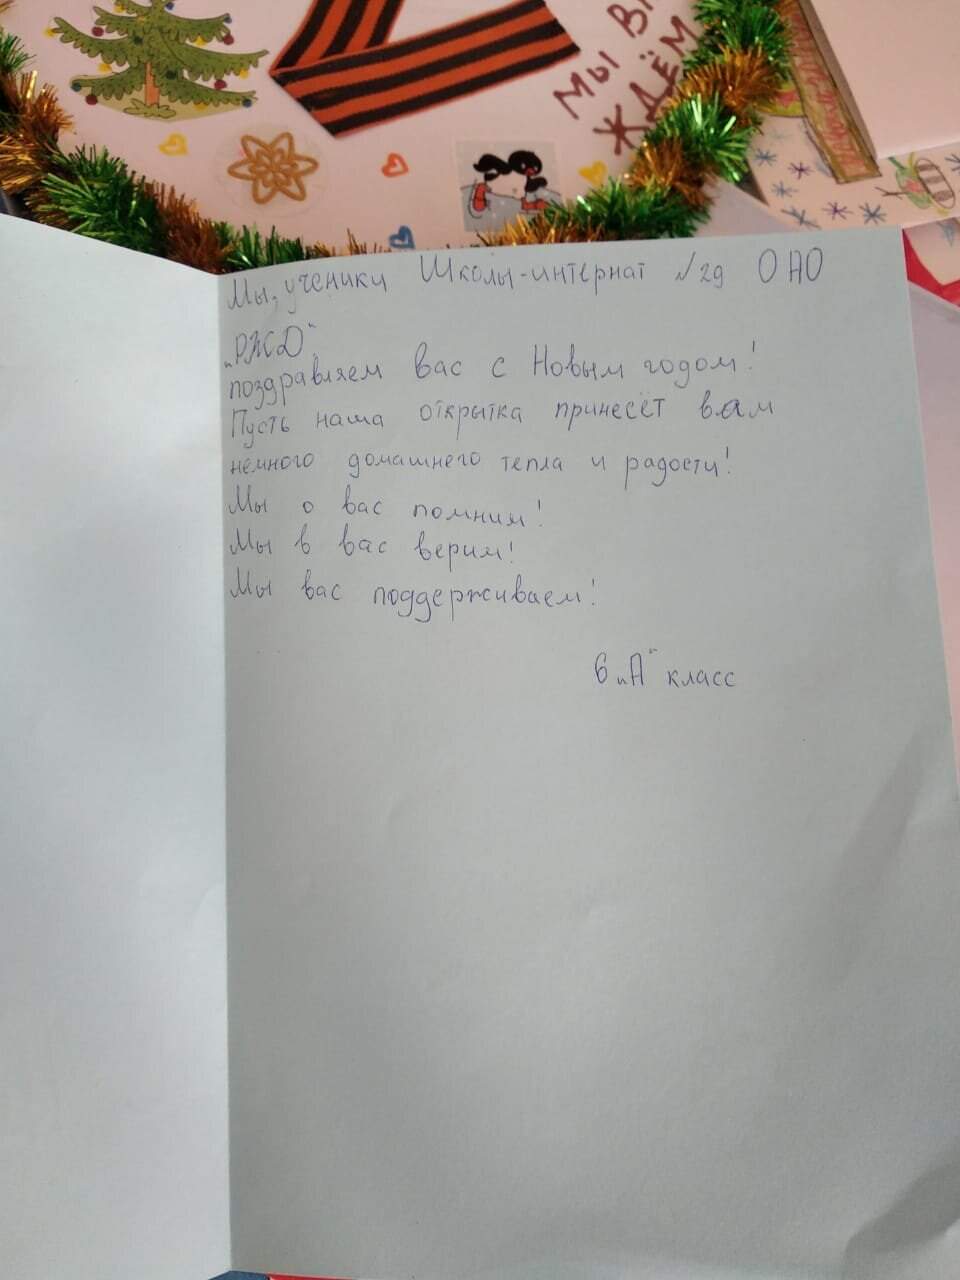 МЫ
ЖДЁМ
Мы, ученики Школы-интернат №29 ОАО
„РЖД“
поздравляем вас с Новым годом!
Пусть наша открытка принесёт вам
немного домашнего тепла и радости!
Мы о вас помним!
Мы в вас верим!
Мы вас поддерживаем!
6 „А“ класс